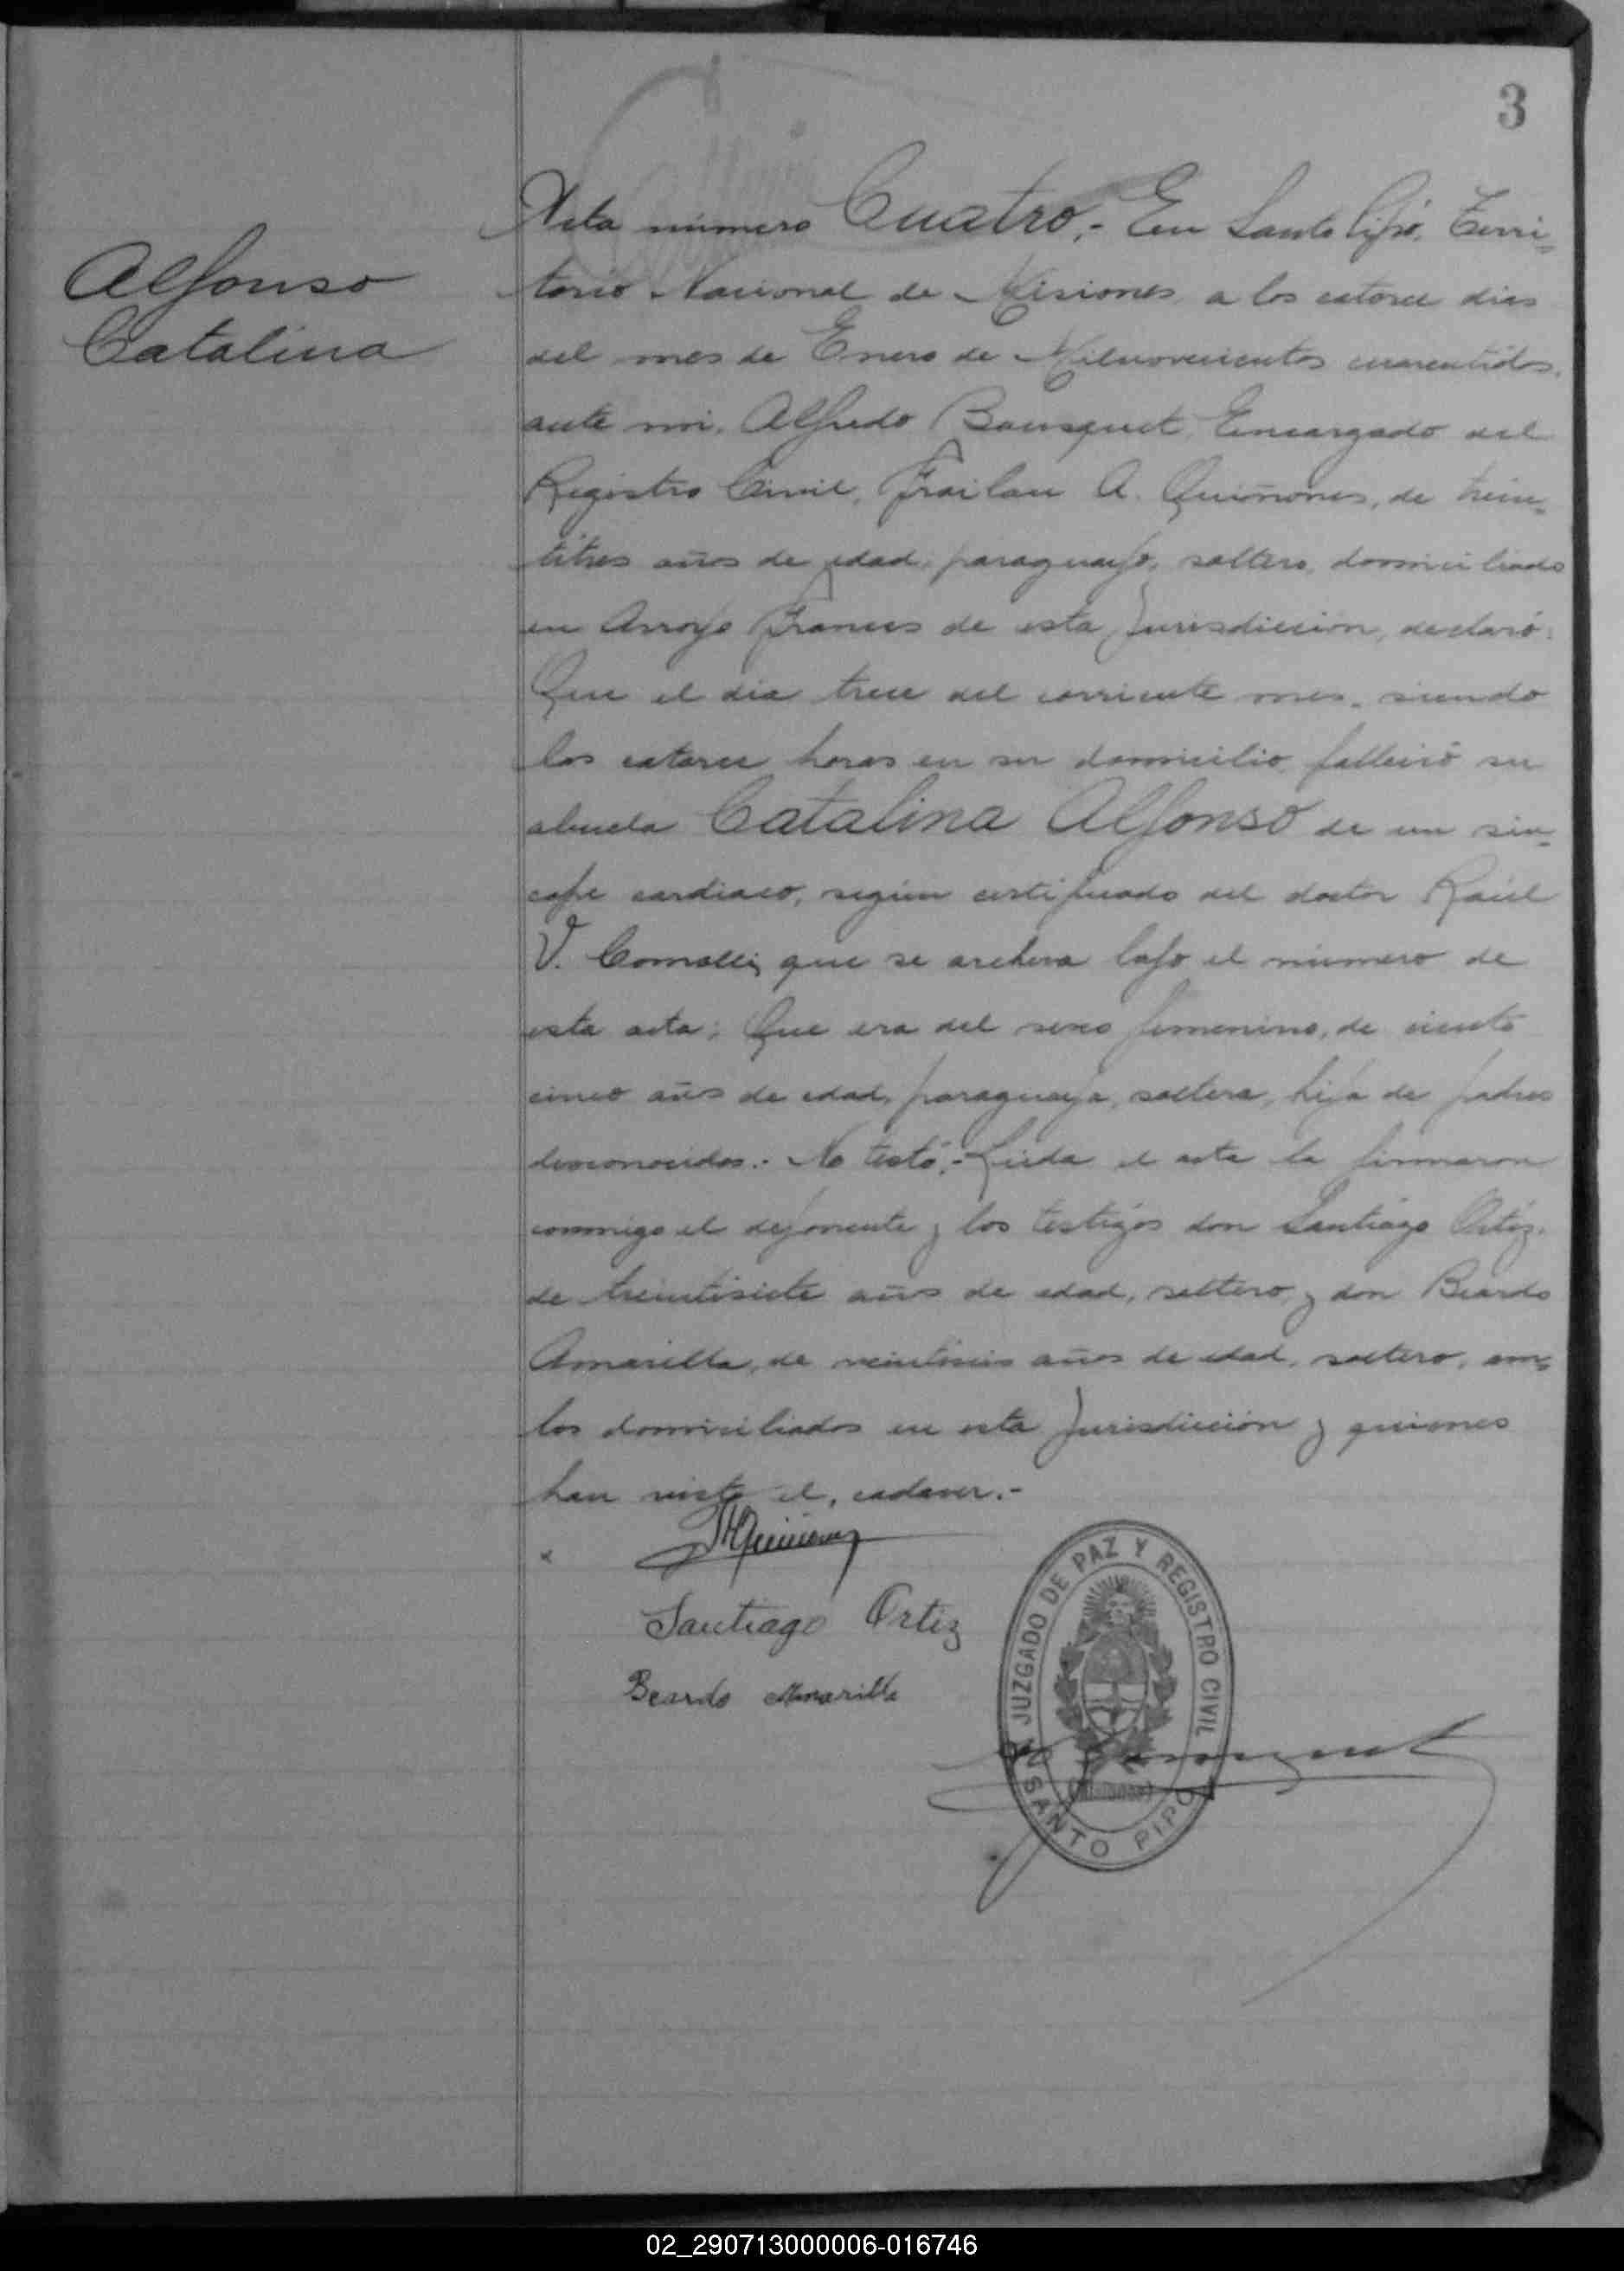 3
Alfonso
Catalina
Acta número Cuatro.- En Santo Pipó, Terri=
torio Nacional de Misiones a los catorce dias
del mes de Enero de Milnovecientos cuarentidos,
ante mi, Alfredo Bousquet, Encargado del
Registro Civil, Froilan A. Quiñones, de trein=
titres años de edad, paraguayo, soltero, domiciliado
en Arroyo Frances de esta Jurisdicción, declaró:
Que el dia trece del corriente mes, siendo
las catorce horas en su domicilio falleció su
abuela Catalina Alfonso de un sin=
cope cardiaco, según certificado del doctor Raúl
V. que se archiva bajo el número de
esta acta; Que era del sexo femenino, de ciento
cinco años de edad, paraguaya, soltera, hija de padres
desconocidos.- No testó.- Leida el acta la firmaron
conmigo el deponente y los testigos don Santiago Ortiz,
de treintisiete años de edad, soltero, y don Beardo
Amarilla, de años de edad, soltero, am=
bos domiciliados en esta Jurisdicción y quienes
han visto el cadaver.-
Quiñones
Santiago Ortiz
Beardo Amarilla
JUZGADO DE PAZ Y REGISTRO CIVIL
SANTO PIPÓ
02_290713000006-016746